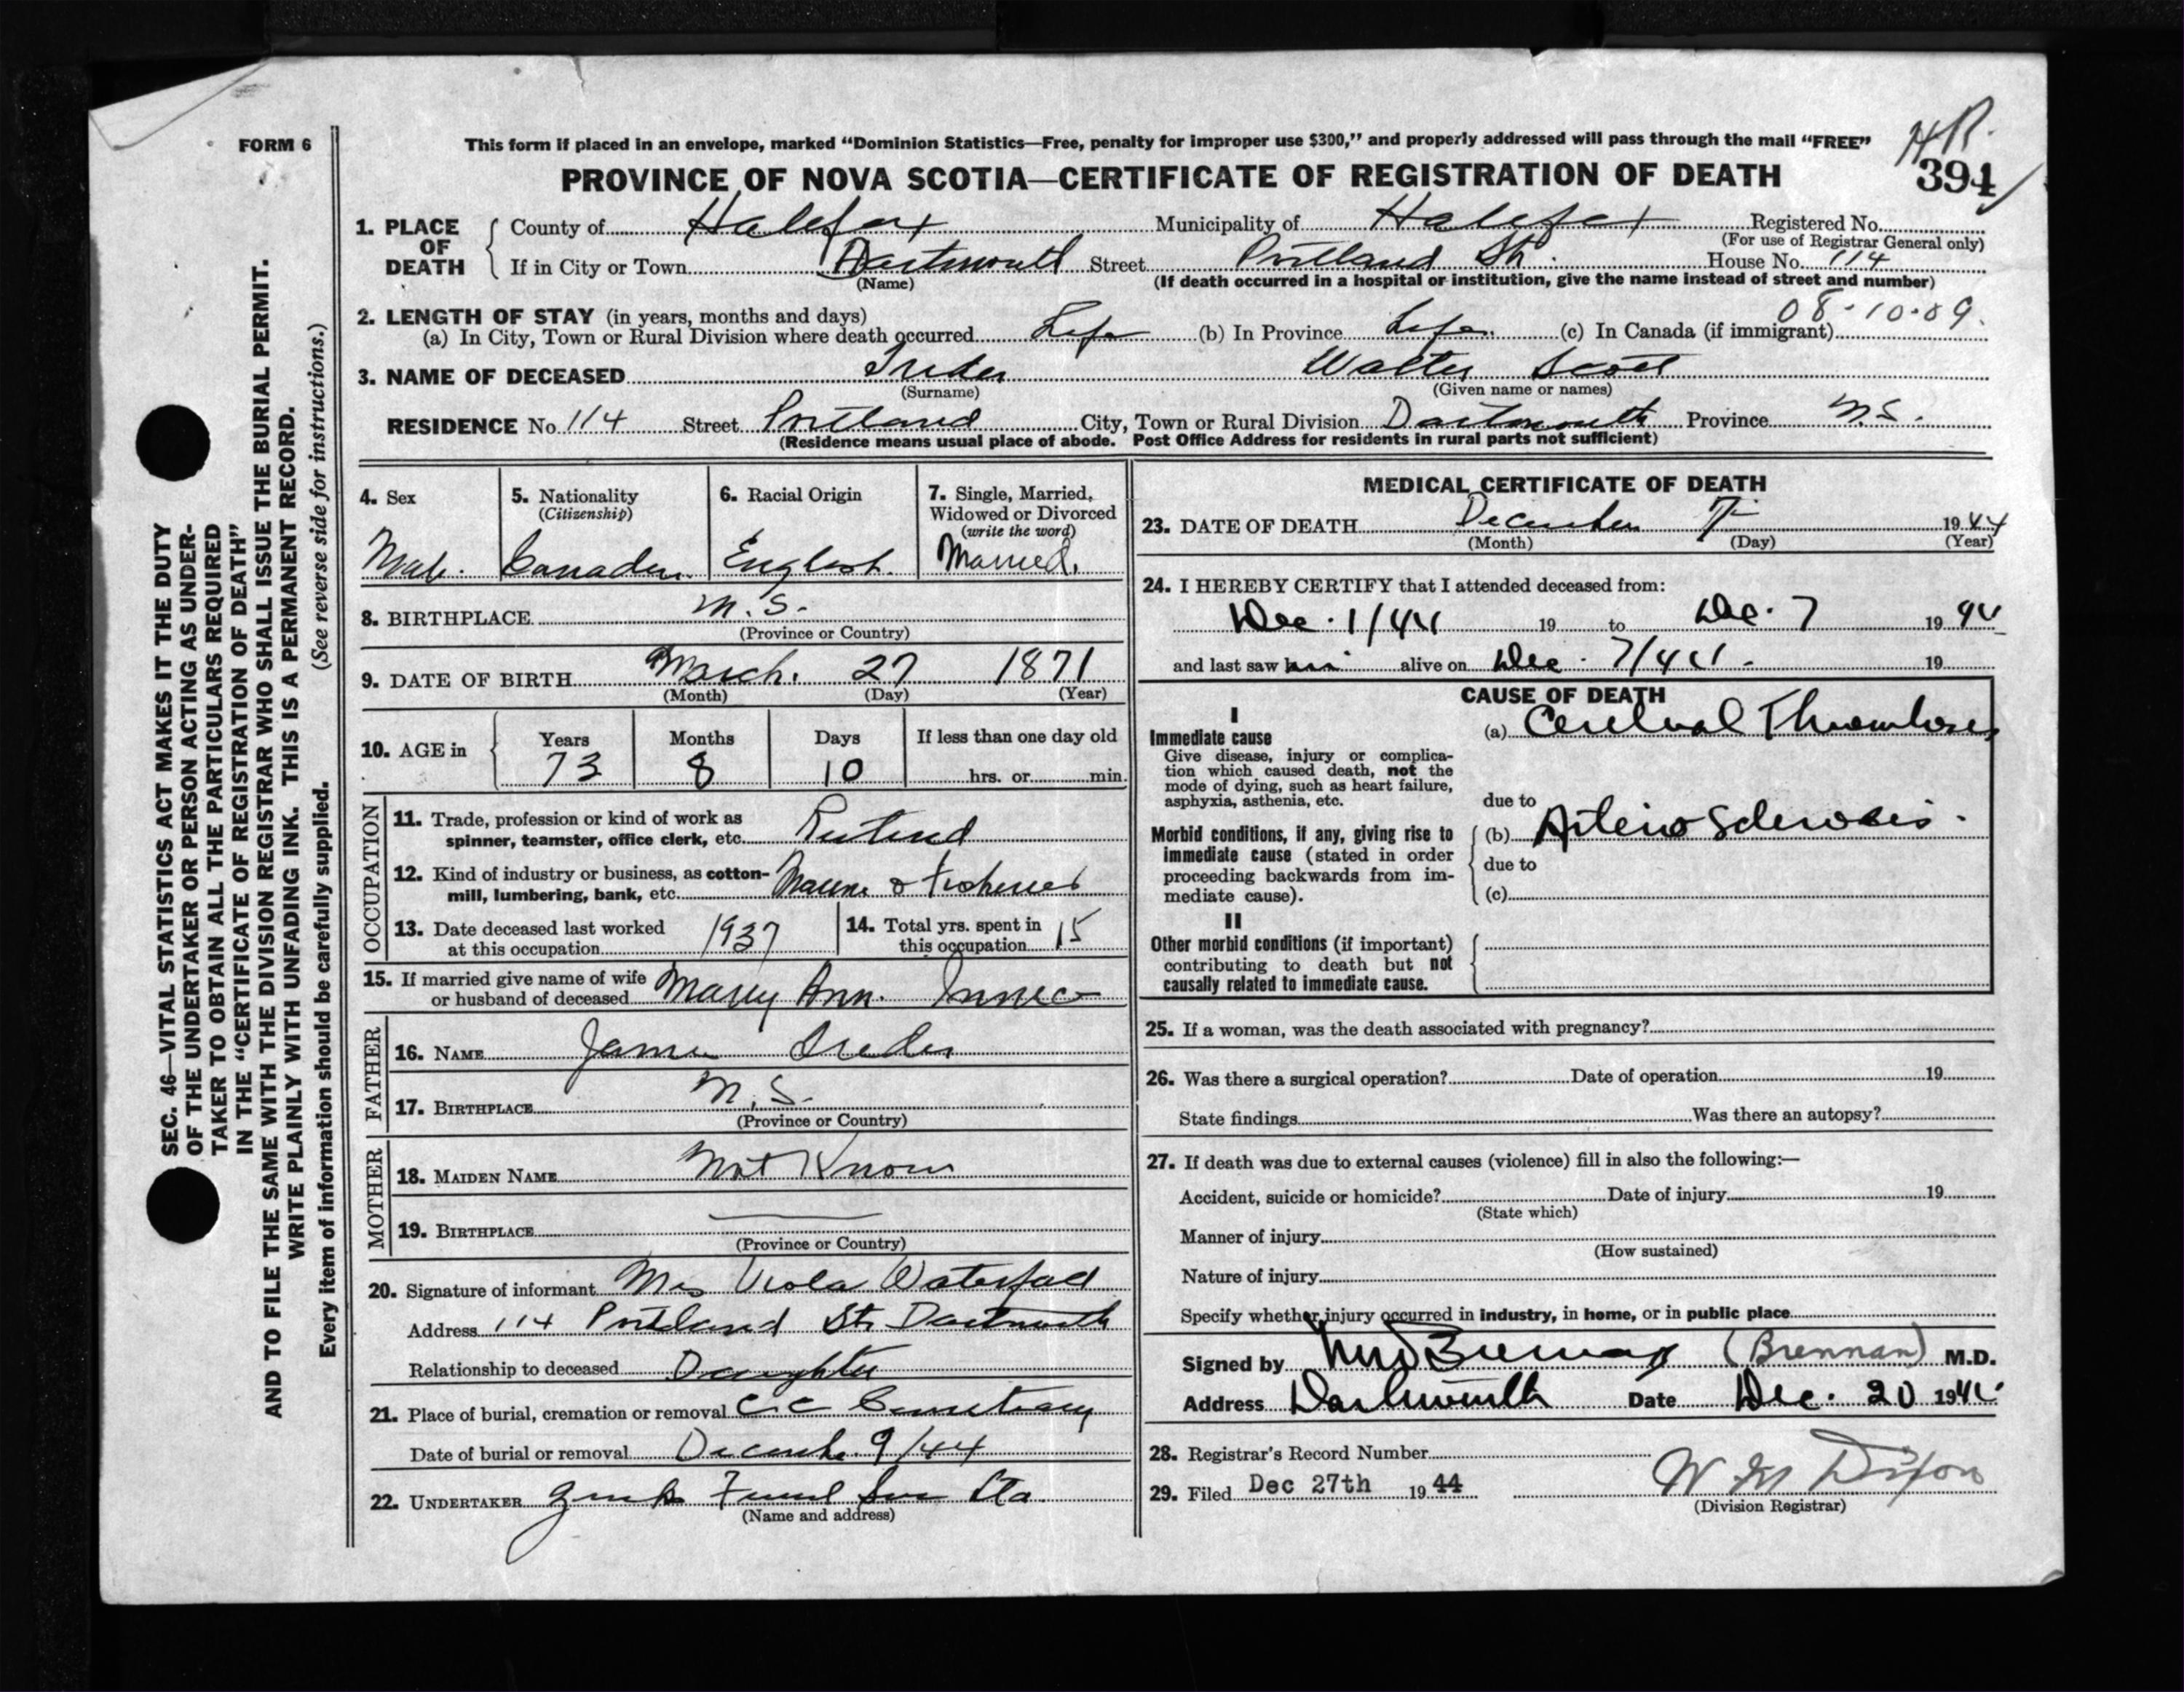 FORM 6
This form if placed in an envelope, marked “Dominion Statistics—Free, penalty for improper use $300,” and properly addressed will pass through the mail “FREE”
H.R.
PROVINCE OF NOVA SCOTIA—CERTIFICATE OF REGISTRATION OF DEATH
394
1. PLACE OF DEATH
County of Halifax Municipality of Halifax Registered No.
(For use of Registrar General only)
If in City or Town Dartmouth Street Portland St. House No. 114
(Name) (If death occurred in a hospital or institution, give the name instead of street and number)
08-10-09.
2. LENGTH OF STAY (in years, months and days)
(a) In City, Town or Rural Division where death occurred Life (b) In Province Life. (c) In Canada (if immigrant)
3. NAME OF DECEASED Walter Scott
(Surname) (Given name or names)
RESIDENCE No. 114 Street Portland City, Town or Rural Division Dartmouth Province N.S.
(Residence means usual place of abode. Post Office Address for residents in rural parts not sufficient)
4. Sex
Male.
5. Nationality
(Citizenship)
Canadian
6. Racial Origin
English.
7. Single, Married,
Widowed or Divorced
(write the word)
Married.
8. BIRTHPLACE N.S.
(Province or Country)
9. DATE OF BIRTH March. 27 1871
(Month) (Day) (Year)
10. AGE in
Years Months Days If less than one day old
73 8 10 hrs. or min.
OCCUPATION
11. Trade, profession or kind of work as
spinner, teamster, office clerk, etc. Retired
12. Kind of industry or business, as cotton-
mill, lumbering, bank, etc. Marine & Fisheries
13. Date deceased last worked
at this occupation 1937
14. Total yrs. spent in
this occupation 15
15. If married give name of wife
or husband of deceased Mary Ann. Innes
FATHER
16. NAME James
17. BIRTHPLACE N.S.
(Province or Country)
MOTHER
18. MAIDEN NAME Not Known
19. BIRTHPLACE
(Province or Country)
20. Signature of informant Mrs Viola Waterfield
Address 114 Portland St. Dartmouth
Relationship to deceased Daughter
21. Place of burial, cremation or removal C.C. Cemeteary
Date of burial or removal December 9/44
22. UNDERTAKER Funeral Ser Lta.
(Name and address)
MEDICAL CERTIFICATE OF DEATH
23. DATE OF DEATH December 7 1944
(Month) (Day) (Year)
24. I HEREBY CERTIFY that I attended deceased from:
Dec. 1/44 19 to Dec. 7 1944
and last saw him alive on Dec. 7/44. 19
CAUSE OF DEATH
I
Immediate cause
Give disease, injury or complica-
tion which caused death, not the
mode of dying, such as heart failure,
asphyxia, asthenia, etc.
(a) Cerebral Thrombosis
due to
Morbid conditions, if any, giving rise to
immediate cause (stated in order
proceeding backwards from im-
mediate cause).
(b) Arterio Sclerosis.
due to
(c)
II
Other morbid conditions (if important)
contributing to death but not
causally related to immediate cause.
25. If a woman, was the death associated with pregnancy?
26. Was there a surgical operation? Date of operation 19
State findings Was there an autopsy?
27. If death was due to external causes (violence) fill in also the following:—
Accident, suicide or homicide? Date of injury 19
(State which)
Manner of injury
(How sustained)
Nature of injury
Specify whether injury occurred in industry, in home, or in public place
Signed by (Brennan) M.D.
Address Dartmouth Date Dec. 20 1944
28. Registrar's Record Number
29. Filed Dec 27th 1944 W M Dixon
(Division Registrar)
SEC. 46—VITAL STATISTICS ACT MAKES IT THE DUTY
OF THE UNDERTAKER OR PERSON ACTING AS UNDER-
TAKER TO OBTAIN ALL THE PARTICULARS REQUIRED
IN THE “CERTIFICATE OF REGISTRATION OF DEATH”
AND TO FILE THE SAME WITH THE DIVISION REGISTRAR WHO SHALL ISSUE THE BURIAL PERMIT.
WRITE PLAINLY WITH UNFADING INK. THIS IS A PERMANENT RECORD.
Every item of information should be carefully supplied. (See reverse side for instructions.)